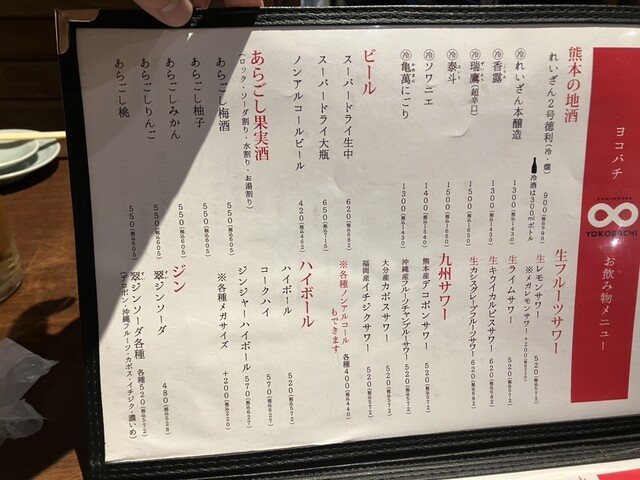 ヨコバチ
YOKOBACHI
お飲み物メニュー
熊本の地酒
れいざん2号徳利(冷・燗) 900(税込990)
冷酒は300mlボトル
冷 れいざん本醸造 1300(税込1430)
冷 香露 1300(税込1430)
冷 瑞鷹(超辛口) 1500(税込1650)
冷 泰斗 1500(税込1650)
冷 ソワニエ 1400(税込1540)
冷 亀萬にごり 1300(税込1430)
ビール
スーパードライ生中 620(税込682)
スーパードライ大瓶 650(税込715)
ノンアルコールビール 420(税込462)
あらごし果実酒
(ロック・ソーダ割り・水割り・お湯割り)
あらごし梅酒 550(税込605)
あらごし柚子 550(税込605)
あらごしみかん 550(税込605)
あらごしりんご 550(税込605)
あらごし桃 550(税込605)
生フルーツサワー
生レモンサワー 520(税込572)
※メガレモンサワー+200(税込220)
生ライムサワー 520(税込572)
生キウイカルピスサワー 620(税込682)
生カシスグレープフルーツサワー 620(税込682)
九州サワー
熊本産デコポンサワー 520(税込572)
沖縄産フルーツチャンプルーサワー 520(税込572)
大分産カボスサワー 520(税込572)
福岡産イチジクサワー 520(税込572)
※各種ノンアルコールもできます 各種400(税込440)
ハイボール
ハイボール 520(税込572)
コークハイ 570(税込627)
ジンジャーハイボール 570(税込627)
※各種メガサイズ +200(税込220)
ジン
翠ジンソーダ 480(税込528)
翠ジンソーダ各種 各種520(税込572)
(デコポン・沖縄フルーツ・カボス・イチジク・濃いめ)